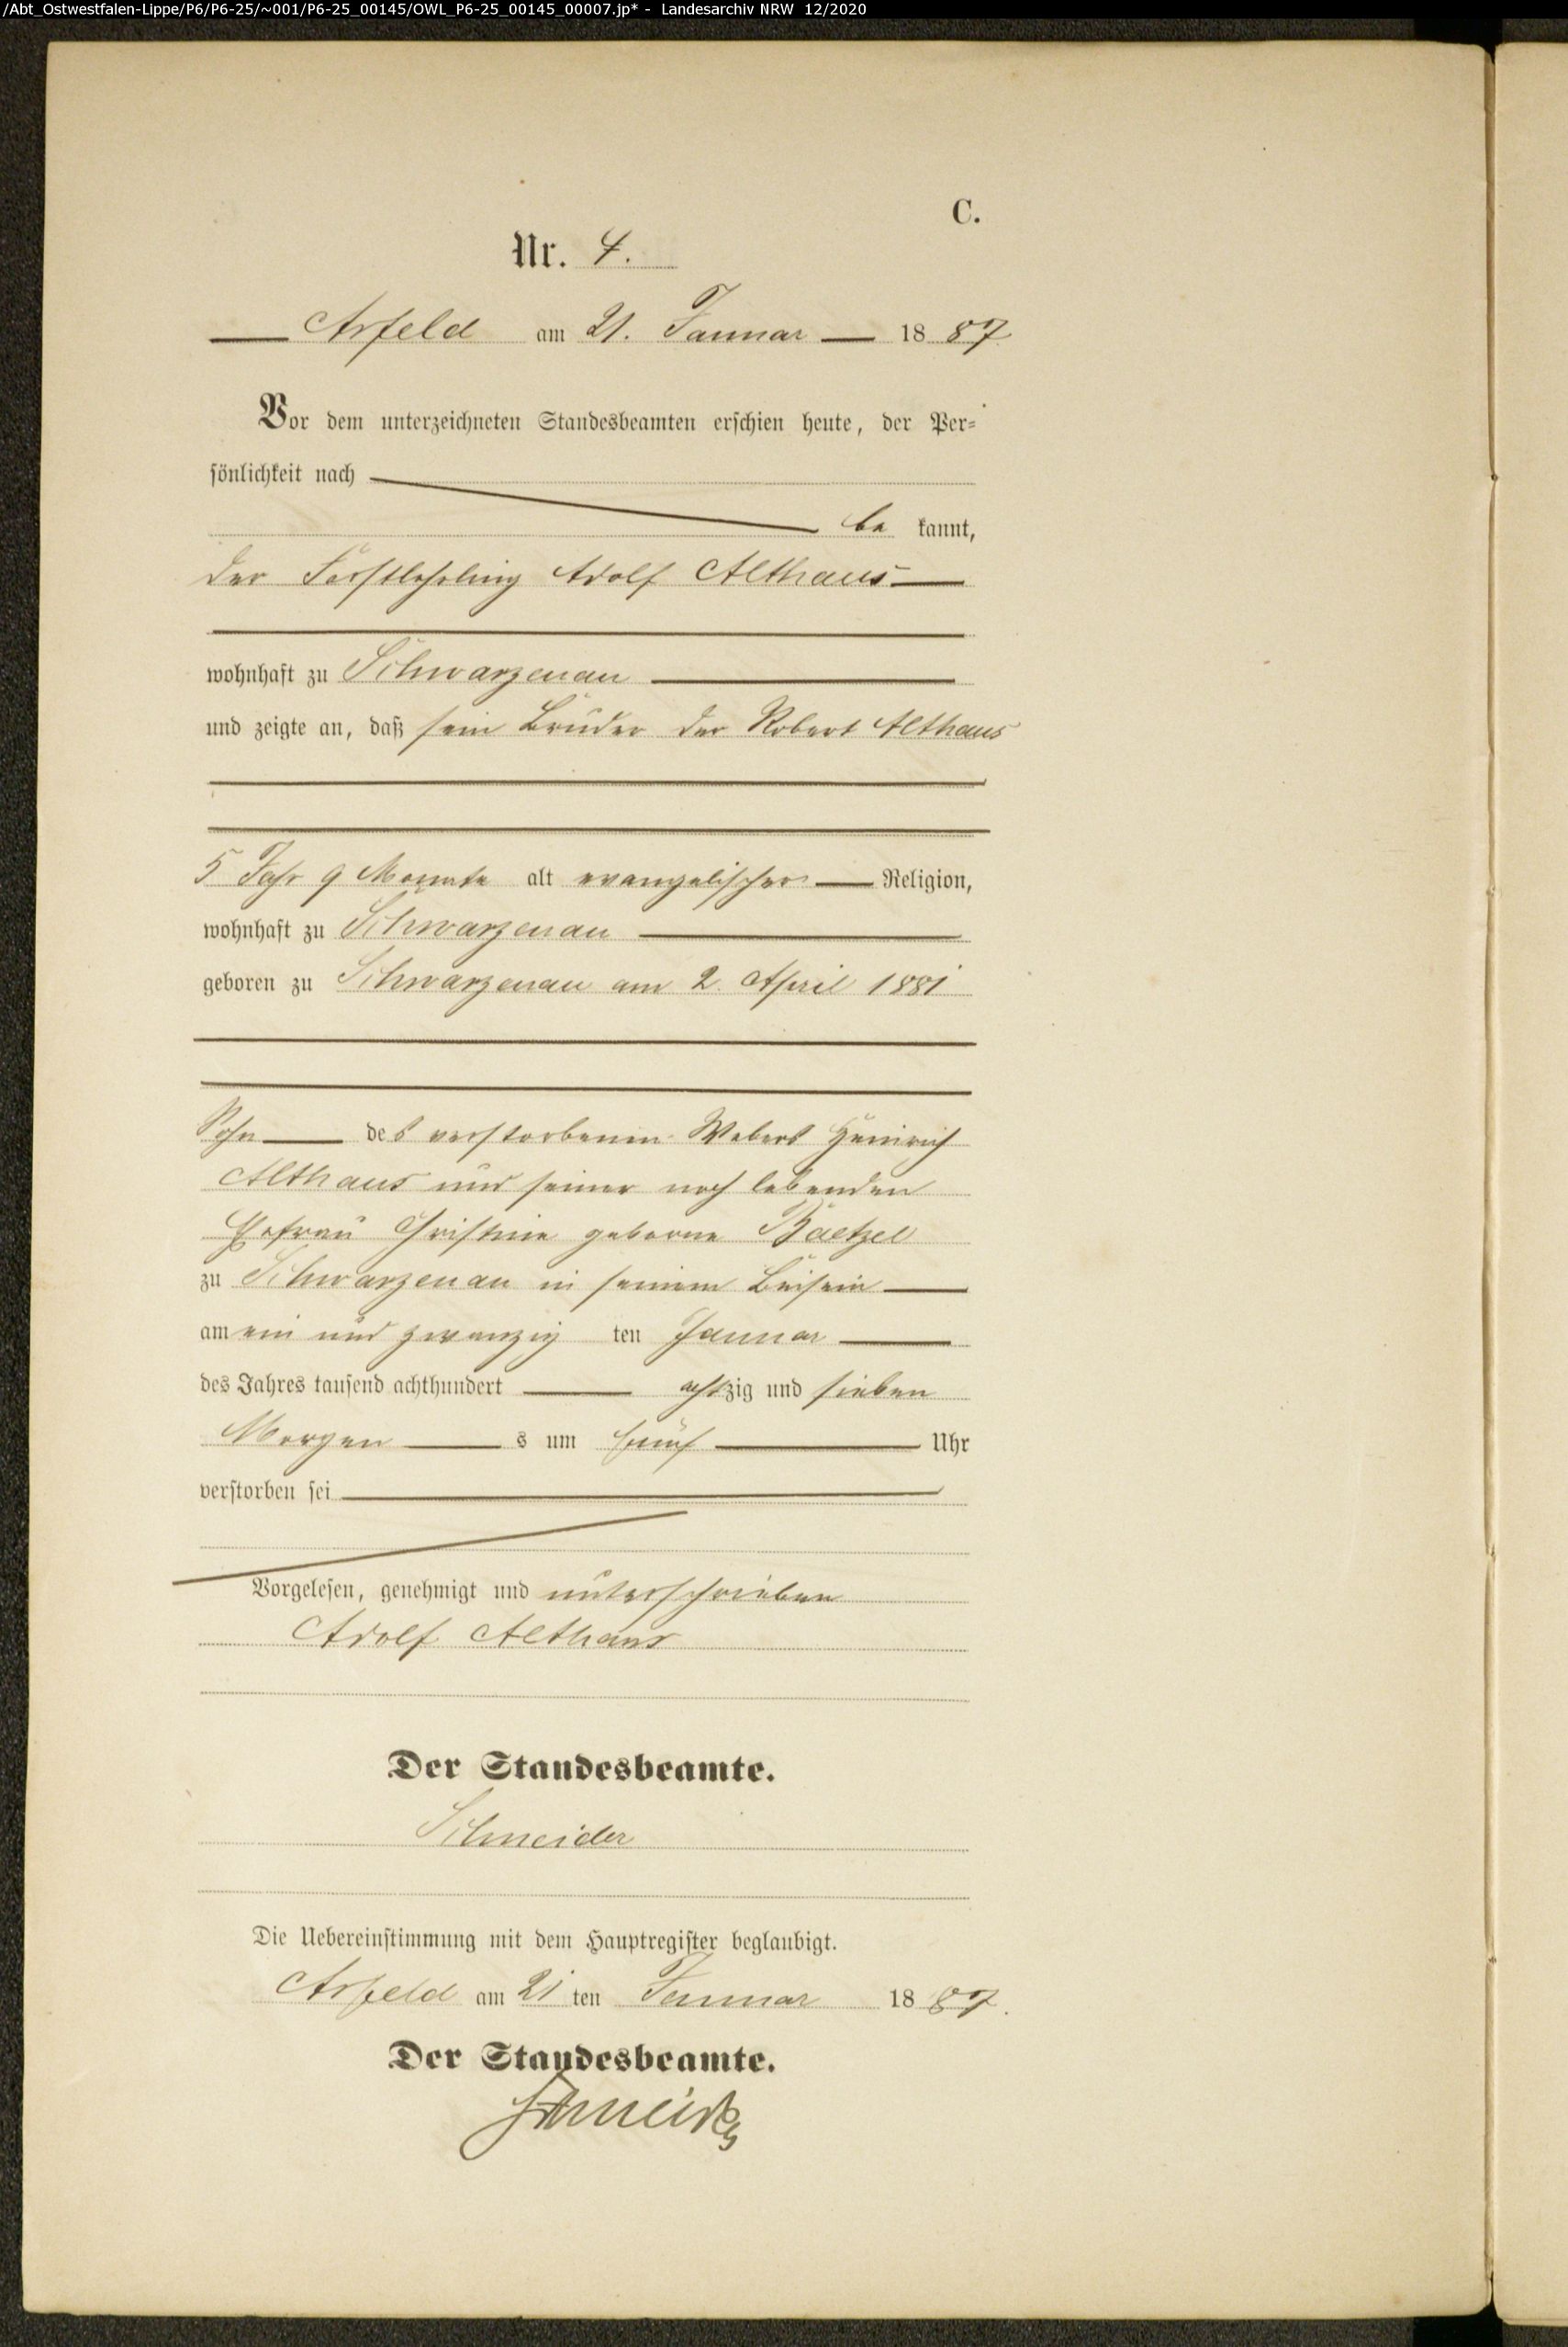 /Abt_Ostwestfalen-Lippe/P6/P6-25/~001/P6-25_00145/OWL_P6-25_00145_00007.jp* - Landesarchiv NRW 12/2020
C.
Nr. 4.
Arfeld am 21. Januar 1887
Vor dem unterzeichneten Standesbeamten erschien heute, der Per-
sönlichkeit nach
be kannt,
der Forstlehrling Adolf Althaus
wohnhaft zu Schwarzenau
und zeigte an, daß sein Bruder der Robert Althaus
5 Jahr 9 Monate alt evangelischer Religion,
wohnhaft zu Schwarzenau
geboren zu Schwarzenau am 2. April 1881
Sohn des verstorbenen Webers Heinrich
Althaus und seiner noch lebenden
Ehefrau Christine geborne Baetzel
zu Schwarzenau in seinem Beisein
am ein und zwanzig ten Januar
des Jahres tausend achthundert achtzig und sieben
Morgen s um fünf Uhr
verstorben sei
Vorgelesen, genehmigt und unterschrieben
Adolf Althaus
Der Standesbeamte.
Schneider
Die Uebereinstimmung mit dem Hauptregister beglaubigt.
Arfeld am 21 ten Januar 1887.
Der Standesbeamte.
Schneider